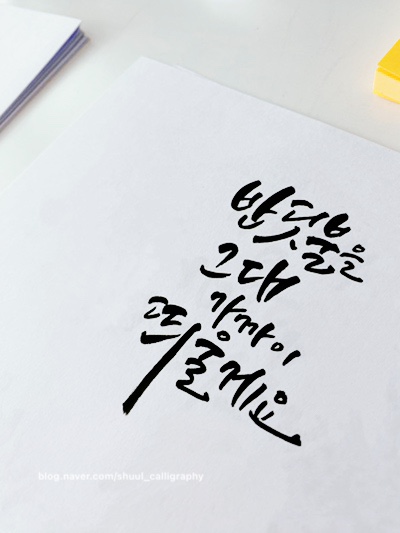 반딧불을
그대
가까이
띄울게요
blog.naver.com/shuul_calligraphy